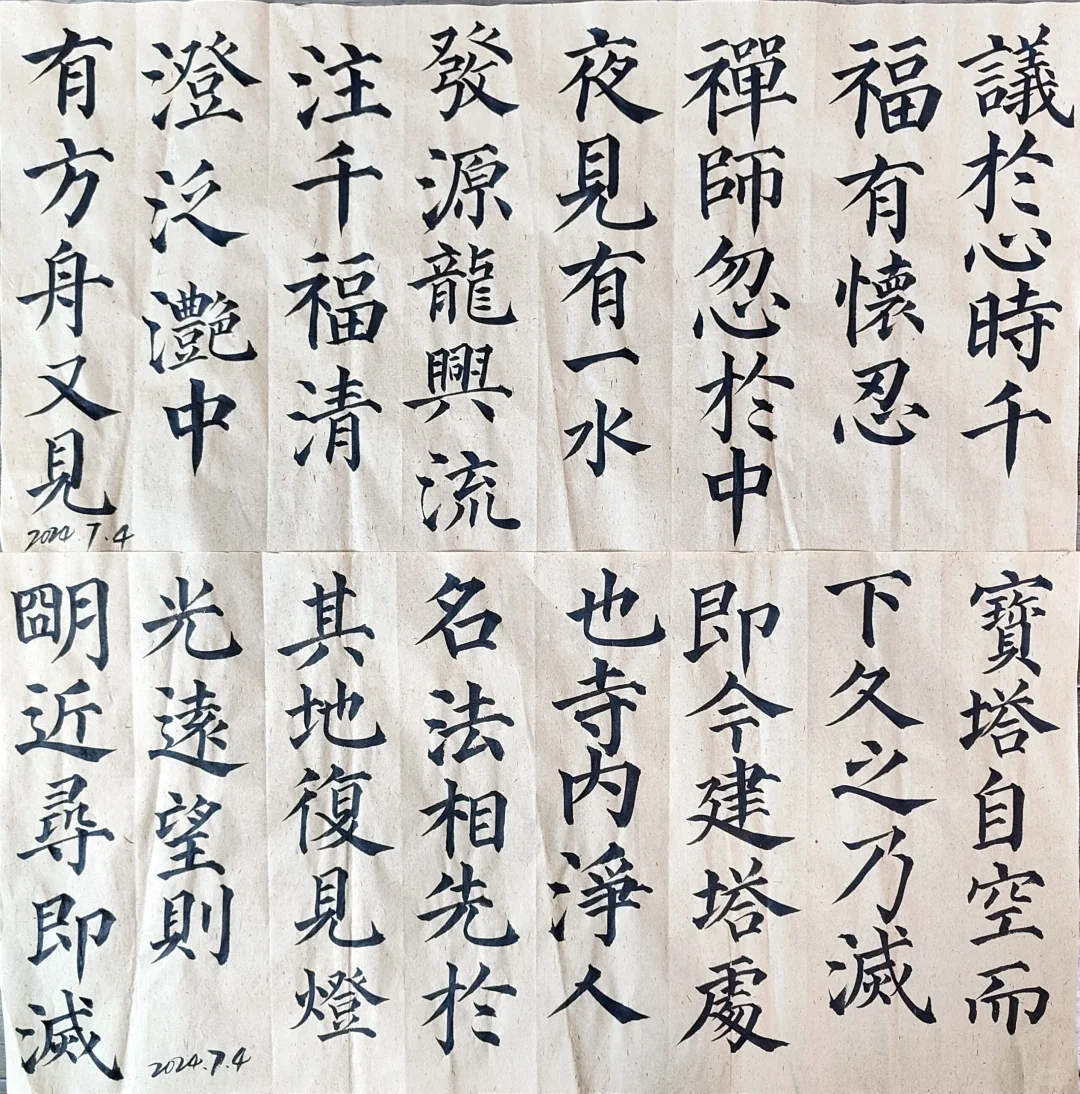 議於心時千
福有懷忍
禪師忽於中
夜見有一水
發源龍興流
注千福清
澄泛灔中
有方舟又見
2024.7.4
寶塔自空而
下久之乃滅
即今建塔處
也寺內淨人
名法相先於
其地復見燈
光遠望則
明近尋即滅
2024.7.4